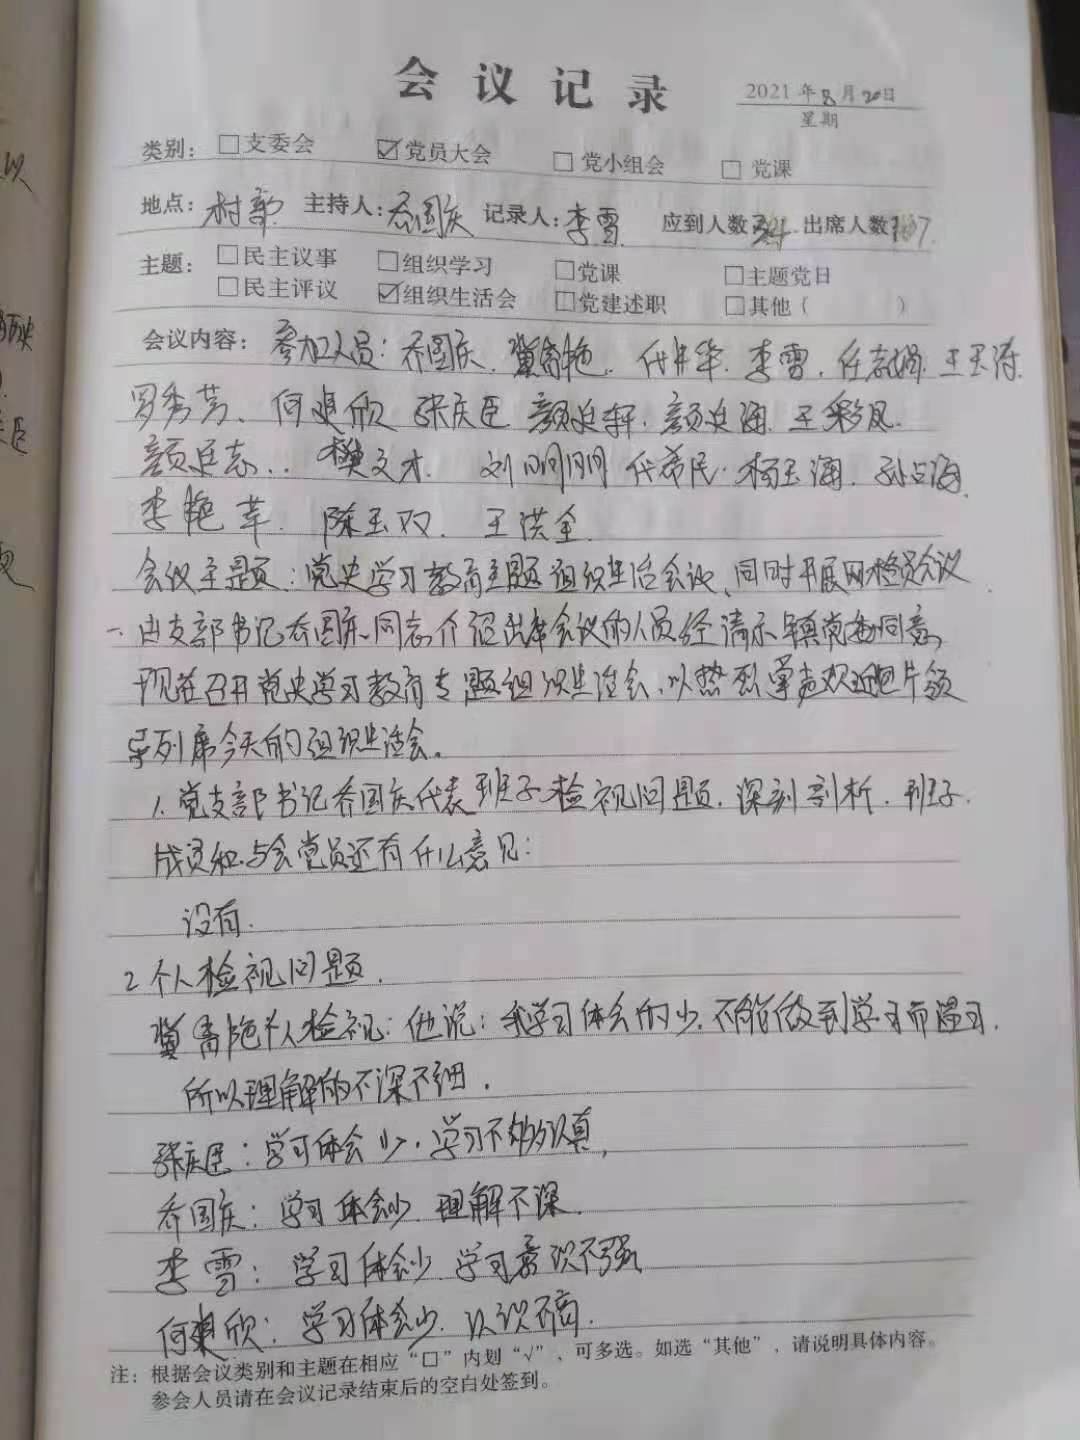 会议记录
2021年8月20日
星期
类别：□支委会 ☑党员大会 □党小组会 □党课
地点：村部 主持人：乔国庆 记录人：李雪 应到人数 出席人数
主题：□民主议事 □组织学习 □党课 □主题党日
□民主评议 ☑组织生活会 □党建述职 □其他（ ）
会议内容：参加人员：乔国庆、冀秀艳、代井华、李雪、任志娟、王玉涛、
罗秀芳、何建欣 张庆臣 颜廷轩、颜廷海、王彩凤、
颜廷志、樊文才、刘明明 代希民、杨玉海、孙占海、
李艳苹、陈玉双、王洪全
会议主题：党史学习教育主题组织生活会议、同时开展网格员会议
一、由支部书记乔国庆同志介绍出席会议的人员经请示镇党委同意，
现在召开党史学习教育专题组织生活会、以热烈掌声欢迎包片领
导列席今天的组织生活会。
1. 党支部书记乔国庆代表班子检视问题，深刻剖析、班子
成员和与会党员还有什么意见：
没有.
2 个人检视问题.
冀秀艳个人检视：他说：我学习体会的少，不能做到学习而温习，
所以理解的不深不细.
张庆臣：学习体会少，学习不够认真，
乔国庆：学习体会少 理解不深.
李雪：学习体会少 学习意识不强
何建欣：学习体会少、认识不高.
注：根据会议类别和主题在相应“□”内划“√”，可多选。如选“其他”，请说明具体内容。
参会人员请在会议记录结束后的空白处签到。